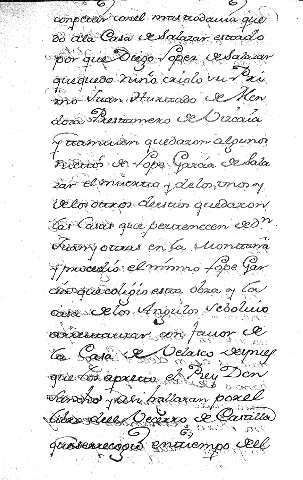 con pelear con el mas todauia que
do ala Casa de Salazar estado
por que Diego Lopez de Salazar
que quedo niño criolo su Pri
mo Juan Hurtado de Men
doza Prestamero de Vizcaia
y tambien quedaron algunos
nietos de Lope Garcia de Sala
zar el muerto y delos, unos y
delos otros deuisas quedaron
las Casas que pertenecen a dn
Juan y otras en la Montaña
y procedio el mismo Lope Gar
cia que colijio esta obra y la
casa de los Angulos se boluio
a restaurar con fauor de
la Casa de Velasco despues
que los apreto el Rey Don
Sancho y asi hallaran por el
libro del Vezerro de Castilla
que se recogio en tiempo del